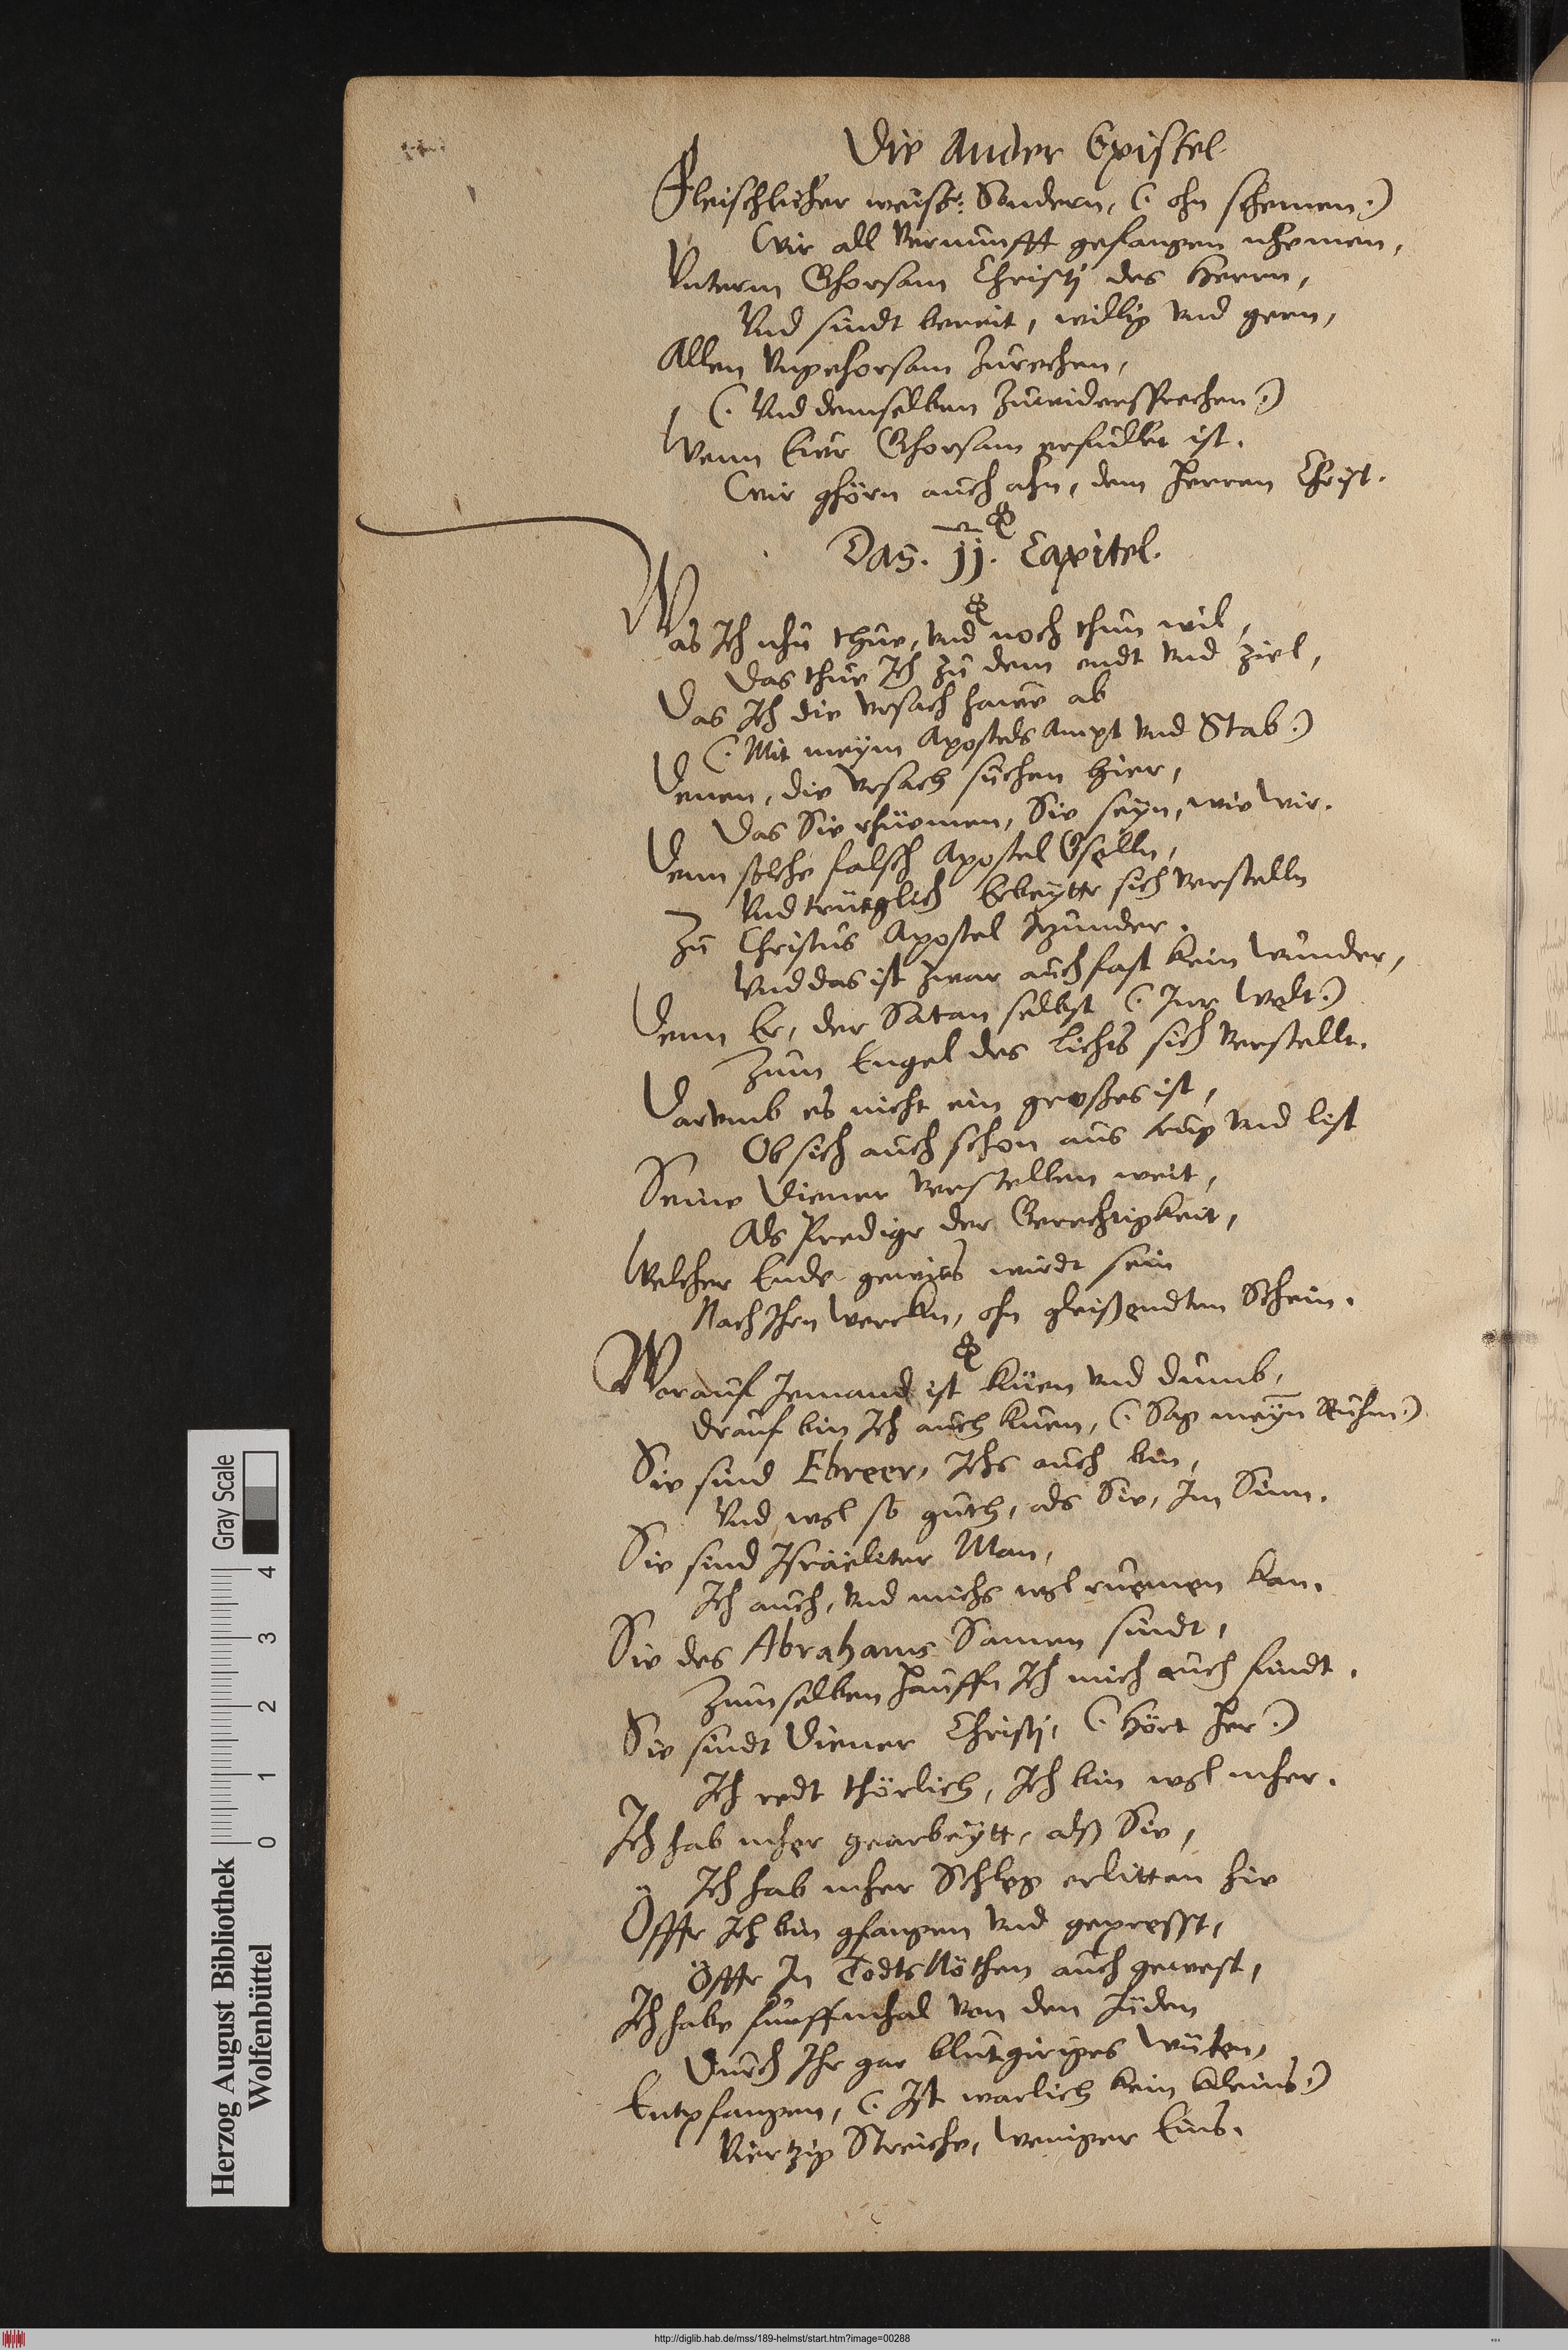 Die Ander Epistel
Fleischlicher weise: Sondern, (. ohn schemen .)
Wir all Vernunfft gefangen nhemen,
Unterm Ghorsam Christj des Herrn,
Vnd sindt bereit, willig vnd gern,
Allen Vngehorsam zurechen,
(. Vnd demselben zuwidersprechen .)
Wenn Ewr Ghorsam erfullet ist.
Wir ghörn auch ahn, dem Herren Christ.
Das. jj. Capitel.
Was Ich nhu thue, vnd noch thun wil,
Das thue Ich zu dem endt vnd ziel,
Das Ich die vrsach hawe ab
(. Mit meym Apostels Ampt vnd Stab .)
Denen, die vrsach suchen hier,
Das Sie rhüemen, Sie seyn, wie wir.
Denn solche falsch Apostel Gselln,
Vnd trüeglich Erbeytter sich verstelln
Zu Christus Apostel itzunder.
Vnd das ist zwar auch fast kein wunder,
Denn Er, der Satan selbst (. Inr Welt .)
Zum Engel des Lichts sich verstellt.
Darumb es nicht ein großes ist,
Ob sich auch schon aus trug vnd list
Seine Diener verstellen weit,
Als Prediger der Gerechtigkeit,
Welcher Ende gewies wirdt sein
Nach Ihrn Wercken, ohn gleißendten Schein.
Worauf Jemand ist küen vnd dumb,
Drauf bin Ich auch kuen, (. Sag meyn Ruhm .)
Sie sind Ebreer, Ichs auch bin,
Vnd wol so guth, als Sie, Im Sinn.
Sie sind Israeliter Man,
Ich auch, vnd michs wol ruemen kan.
Sie des Abrahams Samen sindt,
Zum selben Hauffn Ich mich auch findt.
Sie sindt Diener Christj, (. Hört her .)
Ich redt thörlich, Ich bin wol mher.
Ich hab mher gearbeytt, alß Sie,
Ich hab mher Schleg erlitten hie
Öffter Ich bin gfangen vnd gepresst,
Öffter In Todts Nöthen auch gewest,
Ich habe funffmhal von den Jüden
Durch Ihr gar blutgiriges wüten,
Entpfangen, (. Ist warlich kein kleins .)
Viertzig Streiche, weniger Eins.
Herzog August Bibliothek
Wolfenbüttel
Gray Scale
0 1 2 3 4
http://diglib.hab.de/mss/189-helmst/start.htm?image=00288